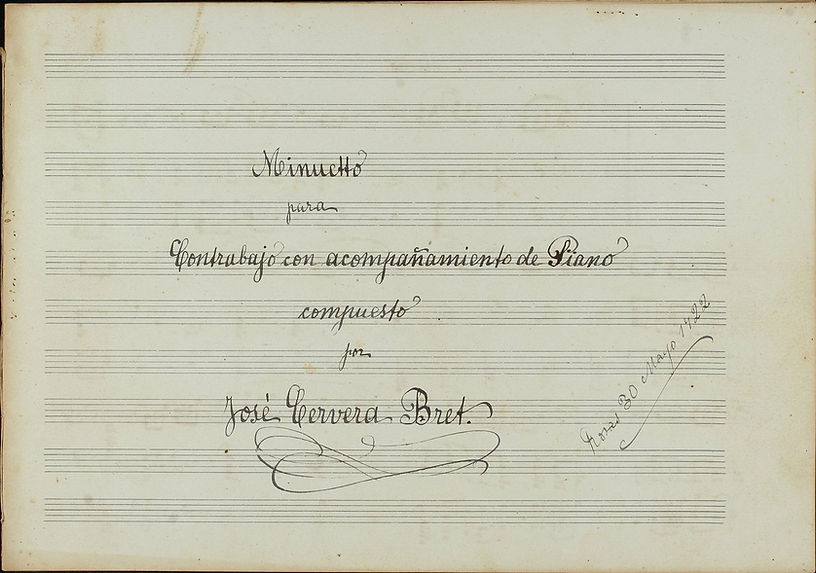 Minuetto
para
Contrabajo con acompañamiento de Piano
compuesto
por
José Cervera Bret.
Roses 30 Mayo 1922